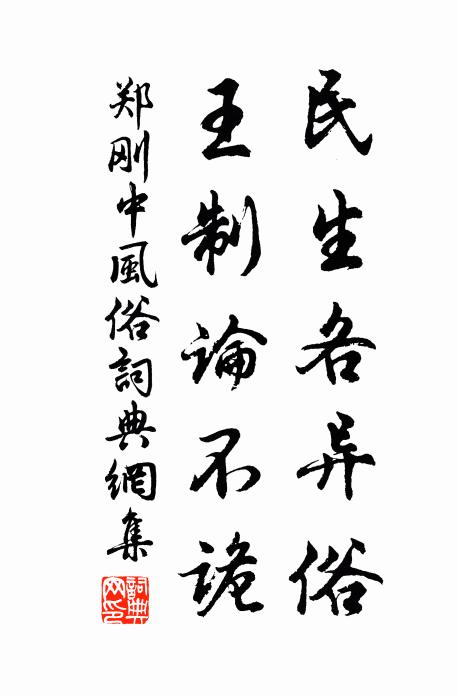 民生各异俗
王制論不詭
郑刚中風俗詞典網集
詞典网印